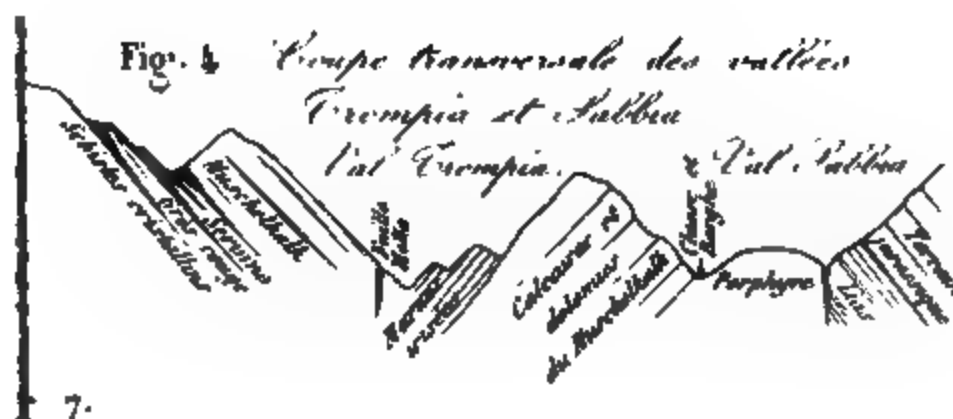 Fig. 4 Coupe transversale des vallées
Trompia et Sabbia
Val Trompia.
Val Sabbia
Schistes cristallins
Grès rouge
Servino
Muschelkalk
Marnes
irisées
Calcaires et
dolomies
du Muschelkalk
Porphyre
Lias
Terrain
jurassique
7.